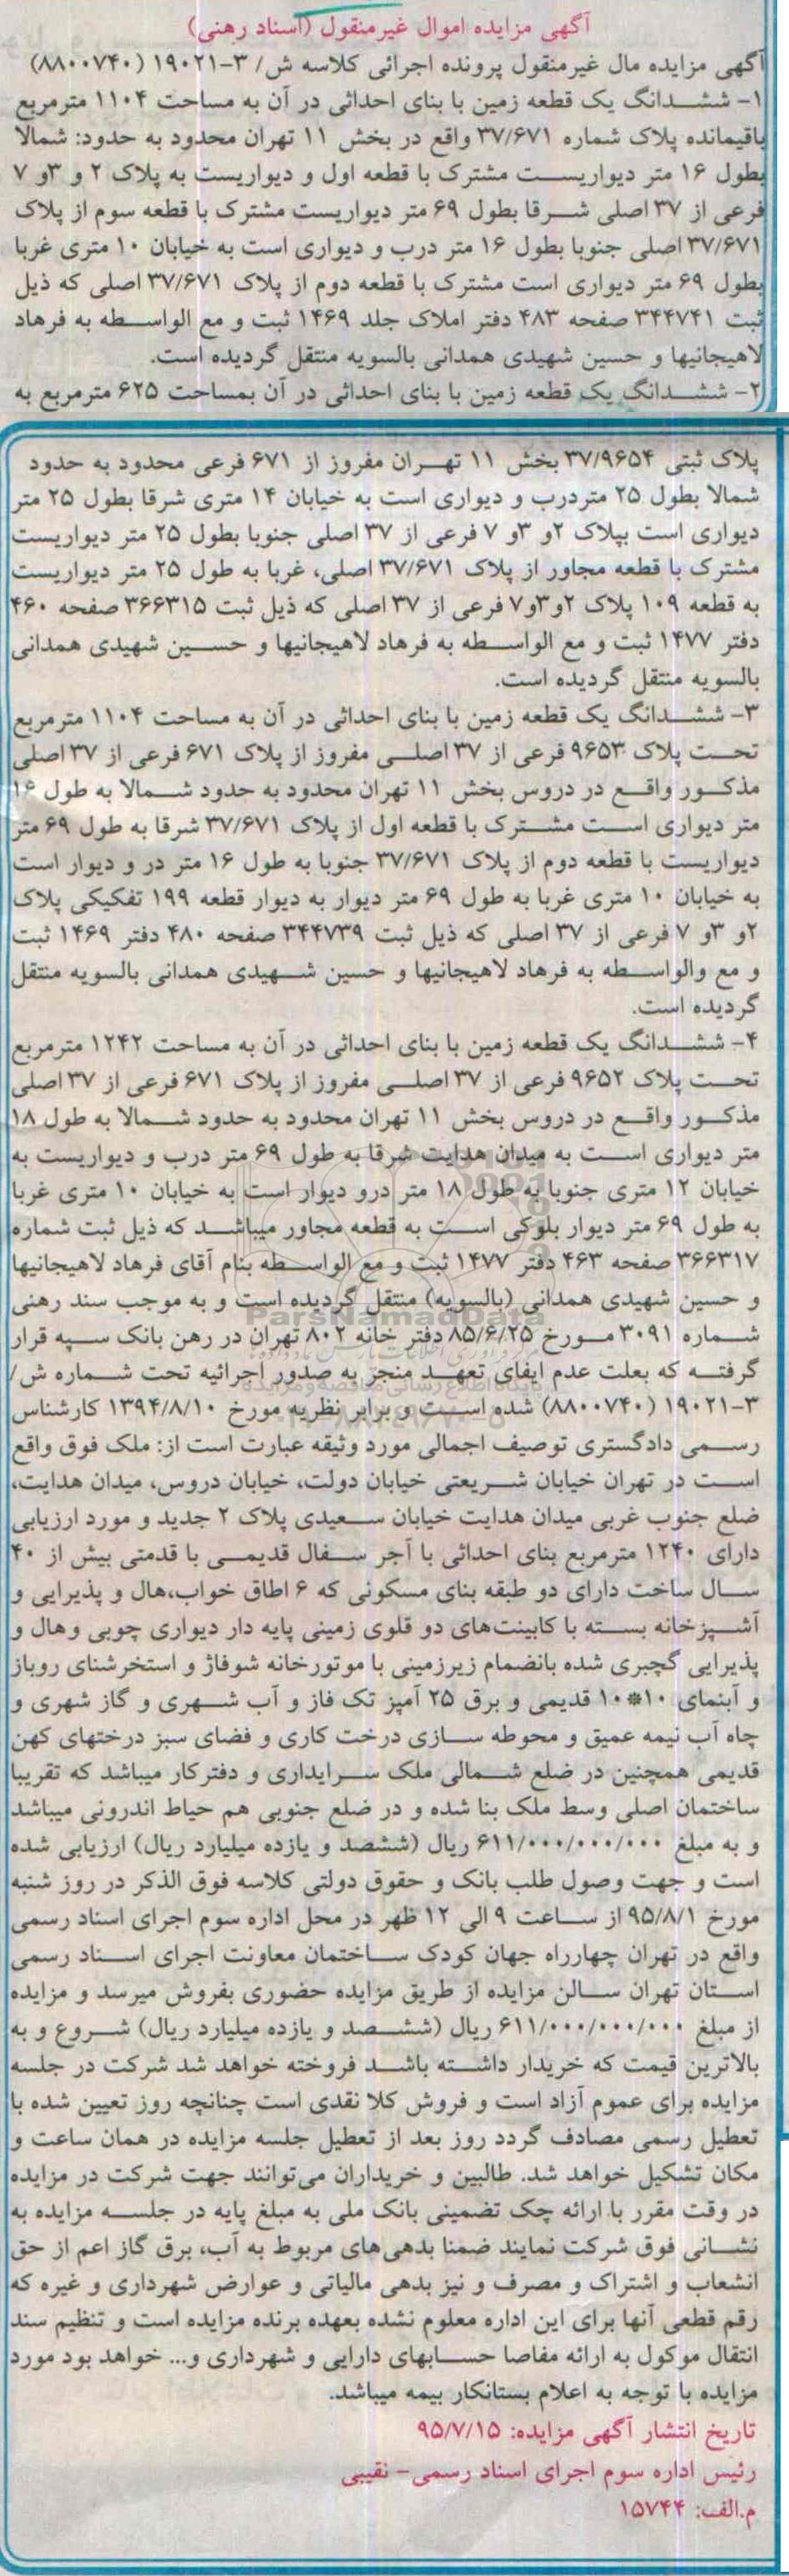 آگهی مزایده اموال غیرمنقول (اسناد رهنی)
آگهی مزایده مال غیرمنقول پرونده اجرائی کلاسه ش/ ۳-۱۹۰۲۱ (۸۸۰۰۷۴۰)
۱- ششدانگ یک قطعه زمین با بنای احداثی در آن به مساحت ۱۱۰۴ مترمربع
باقیمانده پلاک شماره ۳۷/۶۷۱ واقع در بخش ۱۱ تهران محدود به حدود: شمالا
بطول ۱۶ متر دیواریست مشترک با قطعه اول و دیواریست به پلاک ۲ و ۳و ۷
فرعی از ۳۷ اصلی شرقا بطول ۶۹ متر دیواریست مشترک با قطعه سوم از پلاک
۳۷/۶۷۱ اصلی جنوبا بطول ۱۶ متر درب و دیواری است به خیابان ۱۰ متری غربا
بطول ۶۹ متر دیواری است مشترک با قطعه دوم از پلاک ۳۷/۶۷۱ اصلی که ذیل
ثبت ۳۴۴۷۴۱ صفحه ۴۸۳ دفتر املاک جلد ۱۴۶۹ ثبت و مع الواسطه به فرهاد
لاهیجانیها و حسین شهیدی همدانی بالسویه منتقل گردیده است.
۲- ششدانگ یک قطعه زمین با بنای احداثی در آن بمساحت ۶۲۵ مترمربع به
پلاک ثبتی ۳۷/۹۶۵۴ بخش ۱۱ تهران مفروز از ۶۷۱ فرعی محدود به حدود
شمالا بطول ۲۵ متردرب و دیواری است به خیابان ۱۴ متری شرقا بطول ۲۵ متر
دیواری است بپلاک ۲و ۳و ۷ فرعی از ۳۷ اصلی جنوبا بطول ۲۵ متر دیواریست
مشترک با قطعه مجاور از پلاک ۳۷/۶۷۱ اصلی، غربا به طول ۲۵ متر دیواریست
به قطعه ۱۰۹ پلاک ۲و۳و۷ فرعی از ۳۷ اصلی که ذیل ثبت ۳۶۶۳۱۵ صفحه ۴۶۰
دفتر ۱۴۷۷ ثبت و مع الواسطه به فرهاد لاهیجانیها و حسین شهیدی همدانی
بالسویه منتقل گردیده است.
۳- ششدانگ یک قطعه زمین با بنای احداثی در آن به مساحت ۱۱۰۴ مترمربع
تحت پلاک ۹۶۵۳ فرعی از ۳۷ اصلی مفروز از پلاک ۶۷۱ فرعی از ۳۷ اصلی
مذکور واقع در دروس بخش ۱۱ تهران محدود به حدود شمالا به طول ۱۶
متر دیواری است مشترک با قطعه اول از پلاک ۳۷/۶۷۱ شرقا به طول ۶۹ متر
دیواریست با قطعه دوم از پلاک ۳۷/۶۷۱ جنوبا به طول ۱۶ متر در و دیوار است
به خیابان ۱۰ متری غربا به طول ۶۹ متر دیوار به دیوار قطعه ۱۹۹ تفکیکی پلاک
۲و ۳و ۷ فرعی از ۳۷ اصلی که ذیل ثبت ۳۴۴۷۳۹ صفحه ۴۸۰ دفتر ۱۴۶۹ ثبت
و مع والواسطه به فرهاد لاهیجانیها و حسین شهیدی همدانی بالسویه منتقل
گردیده است.
۴- ششدانگ یک قطعه زمین با بنای احداثی در آن به مساحت ۱۲۴۲ مترمربع
تحت پلاک ۹۶۵۲ فرعی از ۳۷ اصلی مفروز از پلاک ۶۷۱ فرعی از ۳۷ اصلی
مذکور واقع در دروس بخش ۱۱ تهران محدود به حدود شمالا به طول ۱۸
متر دیواری است به میدان هدایت شرقا به طول ۶۹ متر درب و دیواریست به
خیابان ۱۲ متری جنوبا به طول ۱۸ متر درو دیوار است به خیابان ۱۰ متری غربا
به طول ۶۹ متر دیوار بلوکی است به قطعه مجاور میباشد که ذیل ثبت شماره
۳۶۶۳۱۷ صفحه ۴۶۳ دفتر ۱۴۷۷ ثبت و مع الواسطه بنام آقای فرهاد لاهیجانیها
و حسین شهیدی همدانی (بالسویه) منتقل گردیده است و به موجب سند رهنی
شماره ۳۰۹۱ مورخ ۸۵/۶/۲۵ دفتر خانه ۸۰۲ تهران در رهن بانک سپه قرار
گرفته که بعلت عدم ایفای تعهد منجر به صدور اجرائیه تحت شماره ش/
۳-۱۹۰۲۱ (۸۸۰۰۷۴۰) شده است و برابر نظریه مورخ ۱۳۹۴/۸/۱۰ کارشناس
رسمی دادگستری توصیف اجمالی مورد وثیقه عبارت است از: ملک فوق واقع
است در تهران خیابان شریعتی خیابان دولت، خیابان دروس، میدان هدایت،
ضلع جنوب غربی میدان هدایت خیابان سعیدی پلاک ۲ جدید و مورد ارزیابی
دارای ۱۲۴۰ مترمربع بنای احداثی با آجر سفال قدیمی با قدمتی بیش از ۴۰
سال ساخت دارای دو طبقه بنای مسکونی که ۶ اطاق خواب،هال و پذیرایی و
آشپزخانه بسته با کابینت‌های دو قلوی زمینی پایه دار دیواری چوبی وهال و
پذیرایی گچبری شده بانضمام زیرزمینی با موتورخانه شوفاژ و استخرشنای روباز
و آبنمای ۱۰*۱۰ قدیمی و برق ۲۵ آمپز تک فاز و آب شهری و گاز شهری و
چاه آب نیمه عمیق و محوطه سازی درخت کاری و فضای سبز درختهای کهن
قدیمی همچنین در ضلع شمالی ملک سرایداری و دفترکار میباشد که تقریبا
ساختمان اصلی وسط ملک بنا شده و در ضلع جنوبی هم حیاط اندرونی میباشد
و به مبلغ ۶۱۱/۰۰۰/۰۰۰/۰۰۰ ریال (ششصد و یازده میلیارد ریال) ارزیابی شده
است و جهت وصول طلب بانک و حقوق دولتی کلاسه فوق الذکر در روز شنبه
مورخ ۹۵/۸/۱ از ساعت ۹ الی ۱۲ ظهر در محل اداره سوم اجرای اسناد رسمی
واقع در تهران چهارراه جهان کودک ساختمان معاونت اجرای اسناد رسمی
استان تهران سالن مزایده از طریق مزایده حضوری بفروش میرسد و مزایده
از مبلغ ۶۱۱/۰۰۰/۰۰۰/۰۰۰ ریال (ششصد و یازده میلیارد ریال) شروع و به
بالاترین قیمت که خریدار داشته باشد فروخته خواهد شد شرکت در جلسه
مزایده برای عموم آزاد است و فروش کلا نقدی است چنانچه روز تعیین شده با
تعطیل رسمی مصادف گردد روز بعد از تعطیل جلسه مزایده در همان ساعت و
مکان تشکیل خواهد شد. طالبین و خریداران می‌توانند جهت شرکت در مزایده
در وقت مقرر با ارائه چک تضمینی بانک ملی به مبلغ پایه در جلسه مزایده به
نشانی فوق شرکت نمایند ضمنا بدهی‌های مربوط به آب، برق گاز اعم از حق
انشعاب و اشتراک و مصرف و نیز بدهی مالیاتی و عوارض شهرداری و غیره که
رقم قطعی آنها برای این اداره معلوم نشده بعهده برنده مزایده است و تنظیم سند
انتقال موکول به ارائه مفاصا حسابهای دارایی و شهرداری و... خواهد بود مورد
مزایده با توجه به اعلام بستانکار بیمه میباشد.
تاریخ انتشار آگهی مزایده: ۹۵/۷/۱۵
رئیس اداره سوم اجرای اسناد رسمی- نقیبی
م.الف: ۱۵۷۴۴
ParsNamadData